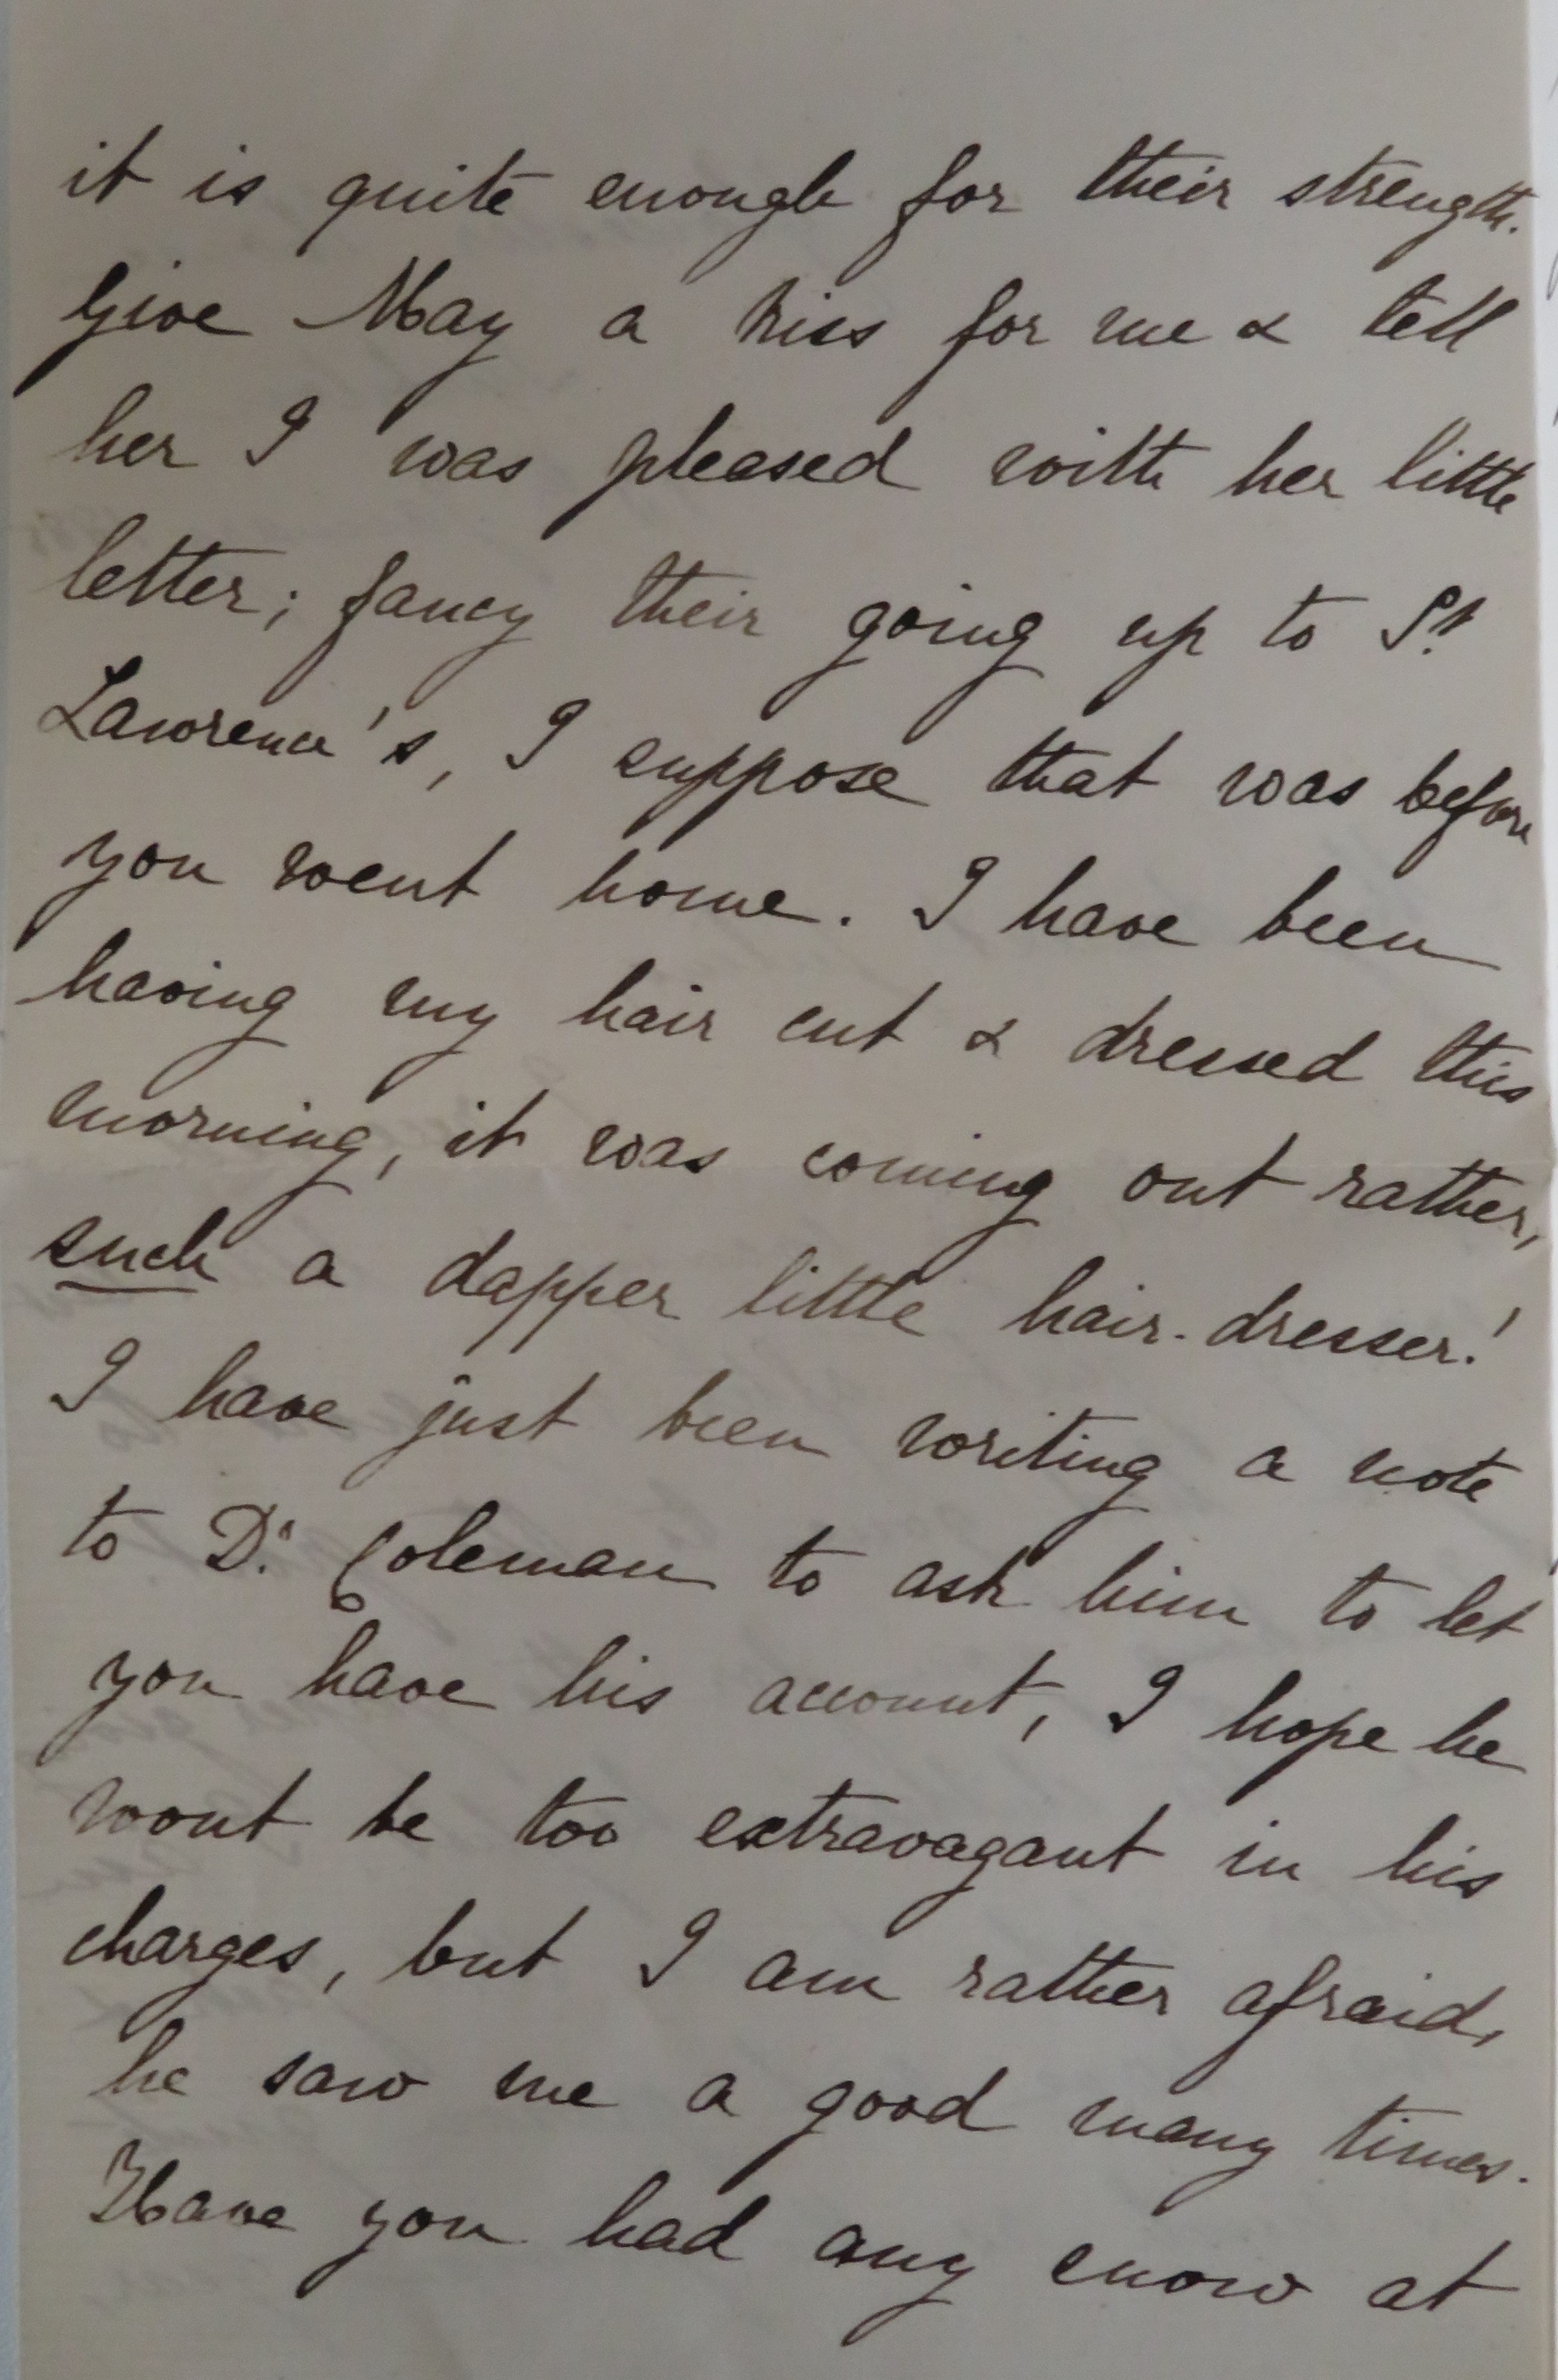 it is quite enough for their strength.
Give May a kiss for me & tell
her I was pleased with her little
letter; fancy their going up to St.
Lawrence's, I suppose that was before
you went home. I have been
having my hair cut & dressed this
morning, it was coming out rather,
such a dapper little hair-dresser!
I have just been writing a note
to Dr. Coleman to ask him to let
you have his account, I hope he
wont be too extravagant in his
charges, but I am rather afraid,
he saw me a good many times.
Have you had any snow at